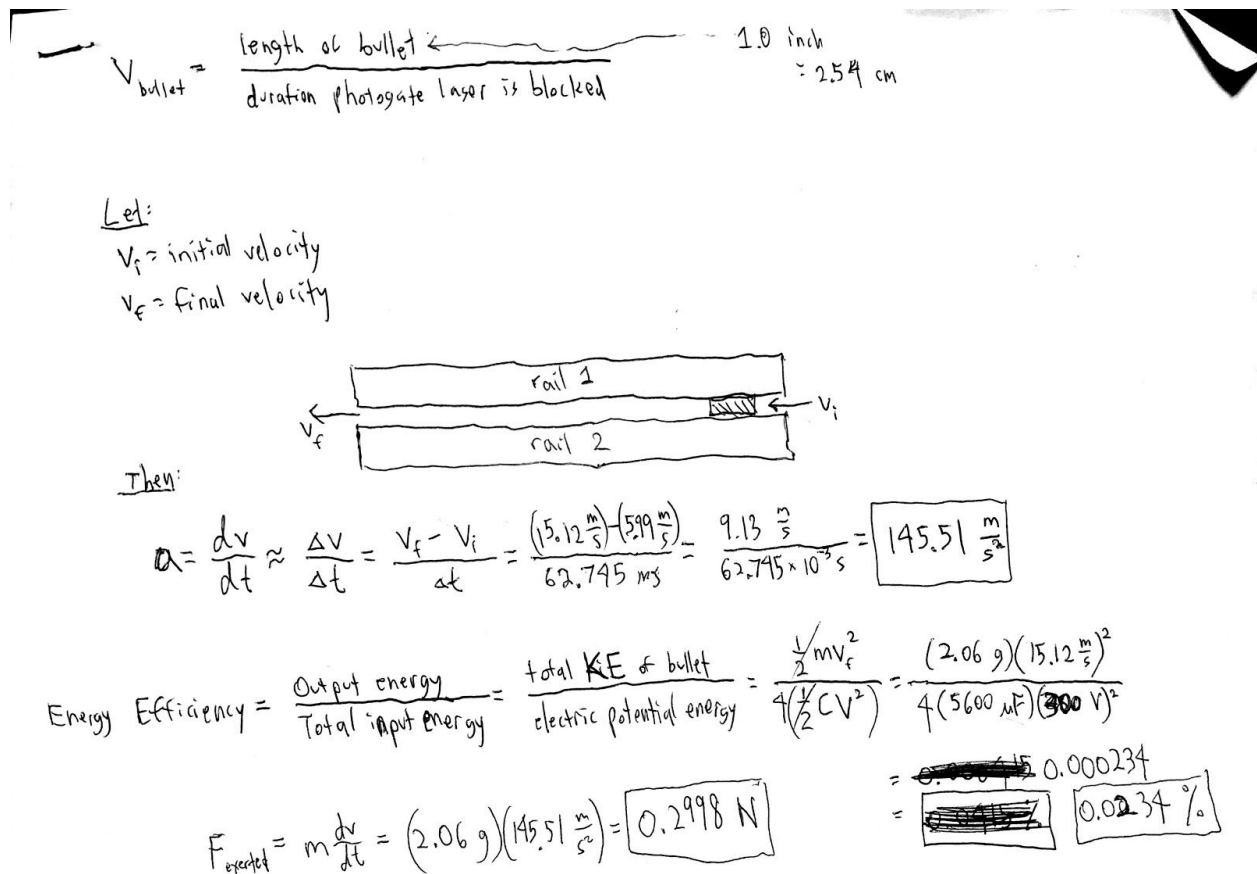 V_bullet = length of bullet / duration photogate laser is blocked ← 1.0 inch
= 2.54 cm
Let:
V_i = initial velocity
V_f = final velocity
rail 1
V_f ← ← V_i
rail 2
Then:
a = dv/dt ≈ ΔV/Δt = (V_f - V_i)/Δt = ((15.12 m/s)-(5.99 m/s))/62.745 ms = 9.13 m/s / 62.745 × 10^-3 s = 145.51 m/s^2
Energy Efficiency = Output energy / Total input energy = total KE of bullet / electric potential energy = 1/2 mV_f^2 / 4(1/2 CV^2) = (2.06 g)(15.12 m/s)^2 / 4(5600 μF)(300 V)^2
= 0.000234
= 0.0234 %
F_exerted = m dv/dt = (2.06 g)(145.51 m/s^2) = 0.2998 N